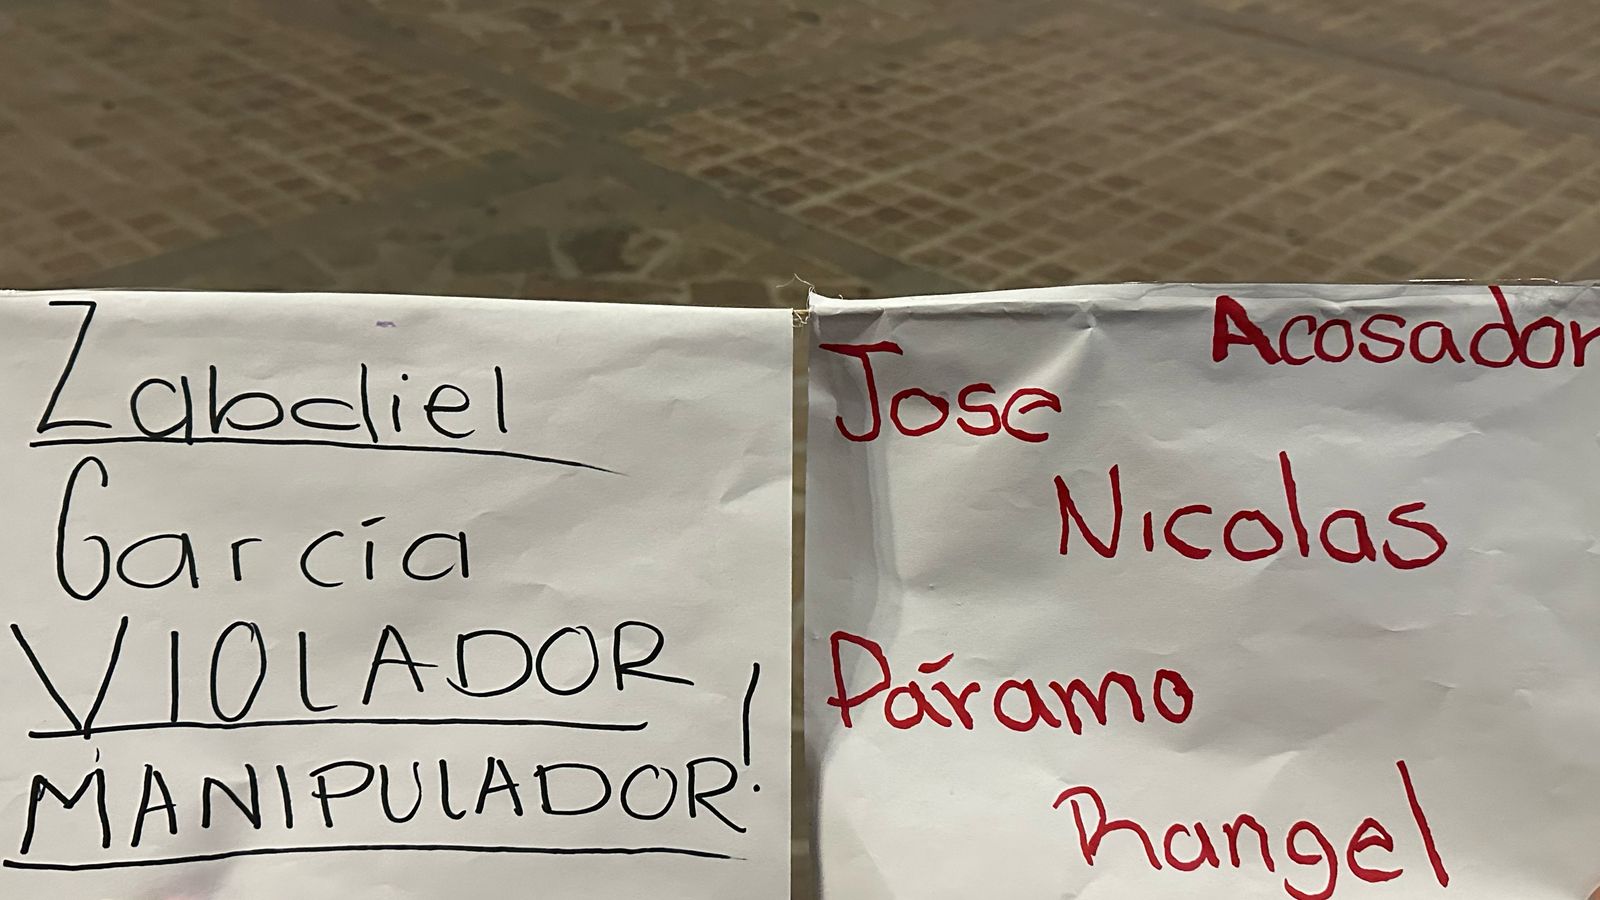 Zabdiel
García
VIOLADOR
MANIPULADOR!
Acosador
Jose
Nicolas
Páramo
Rangel